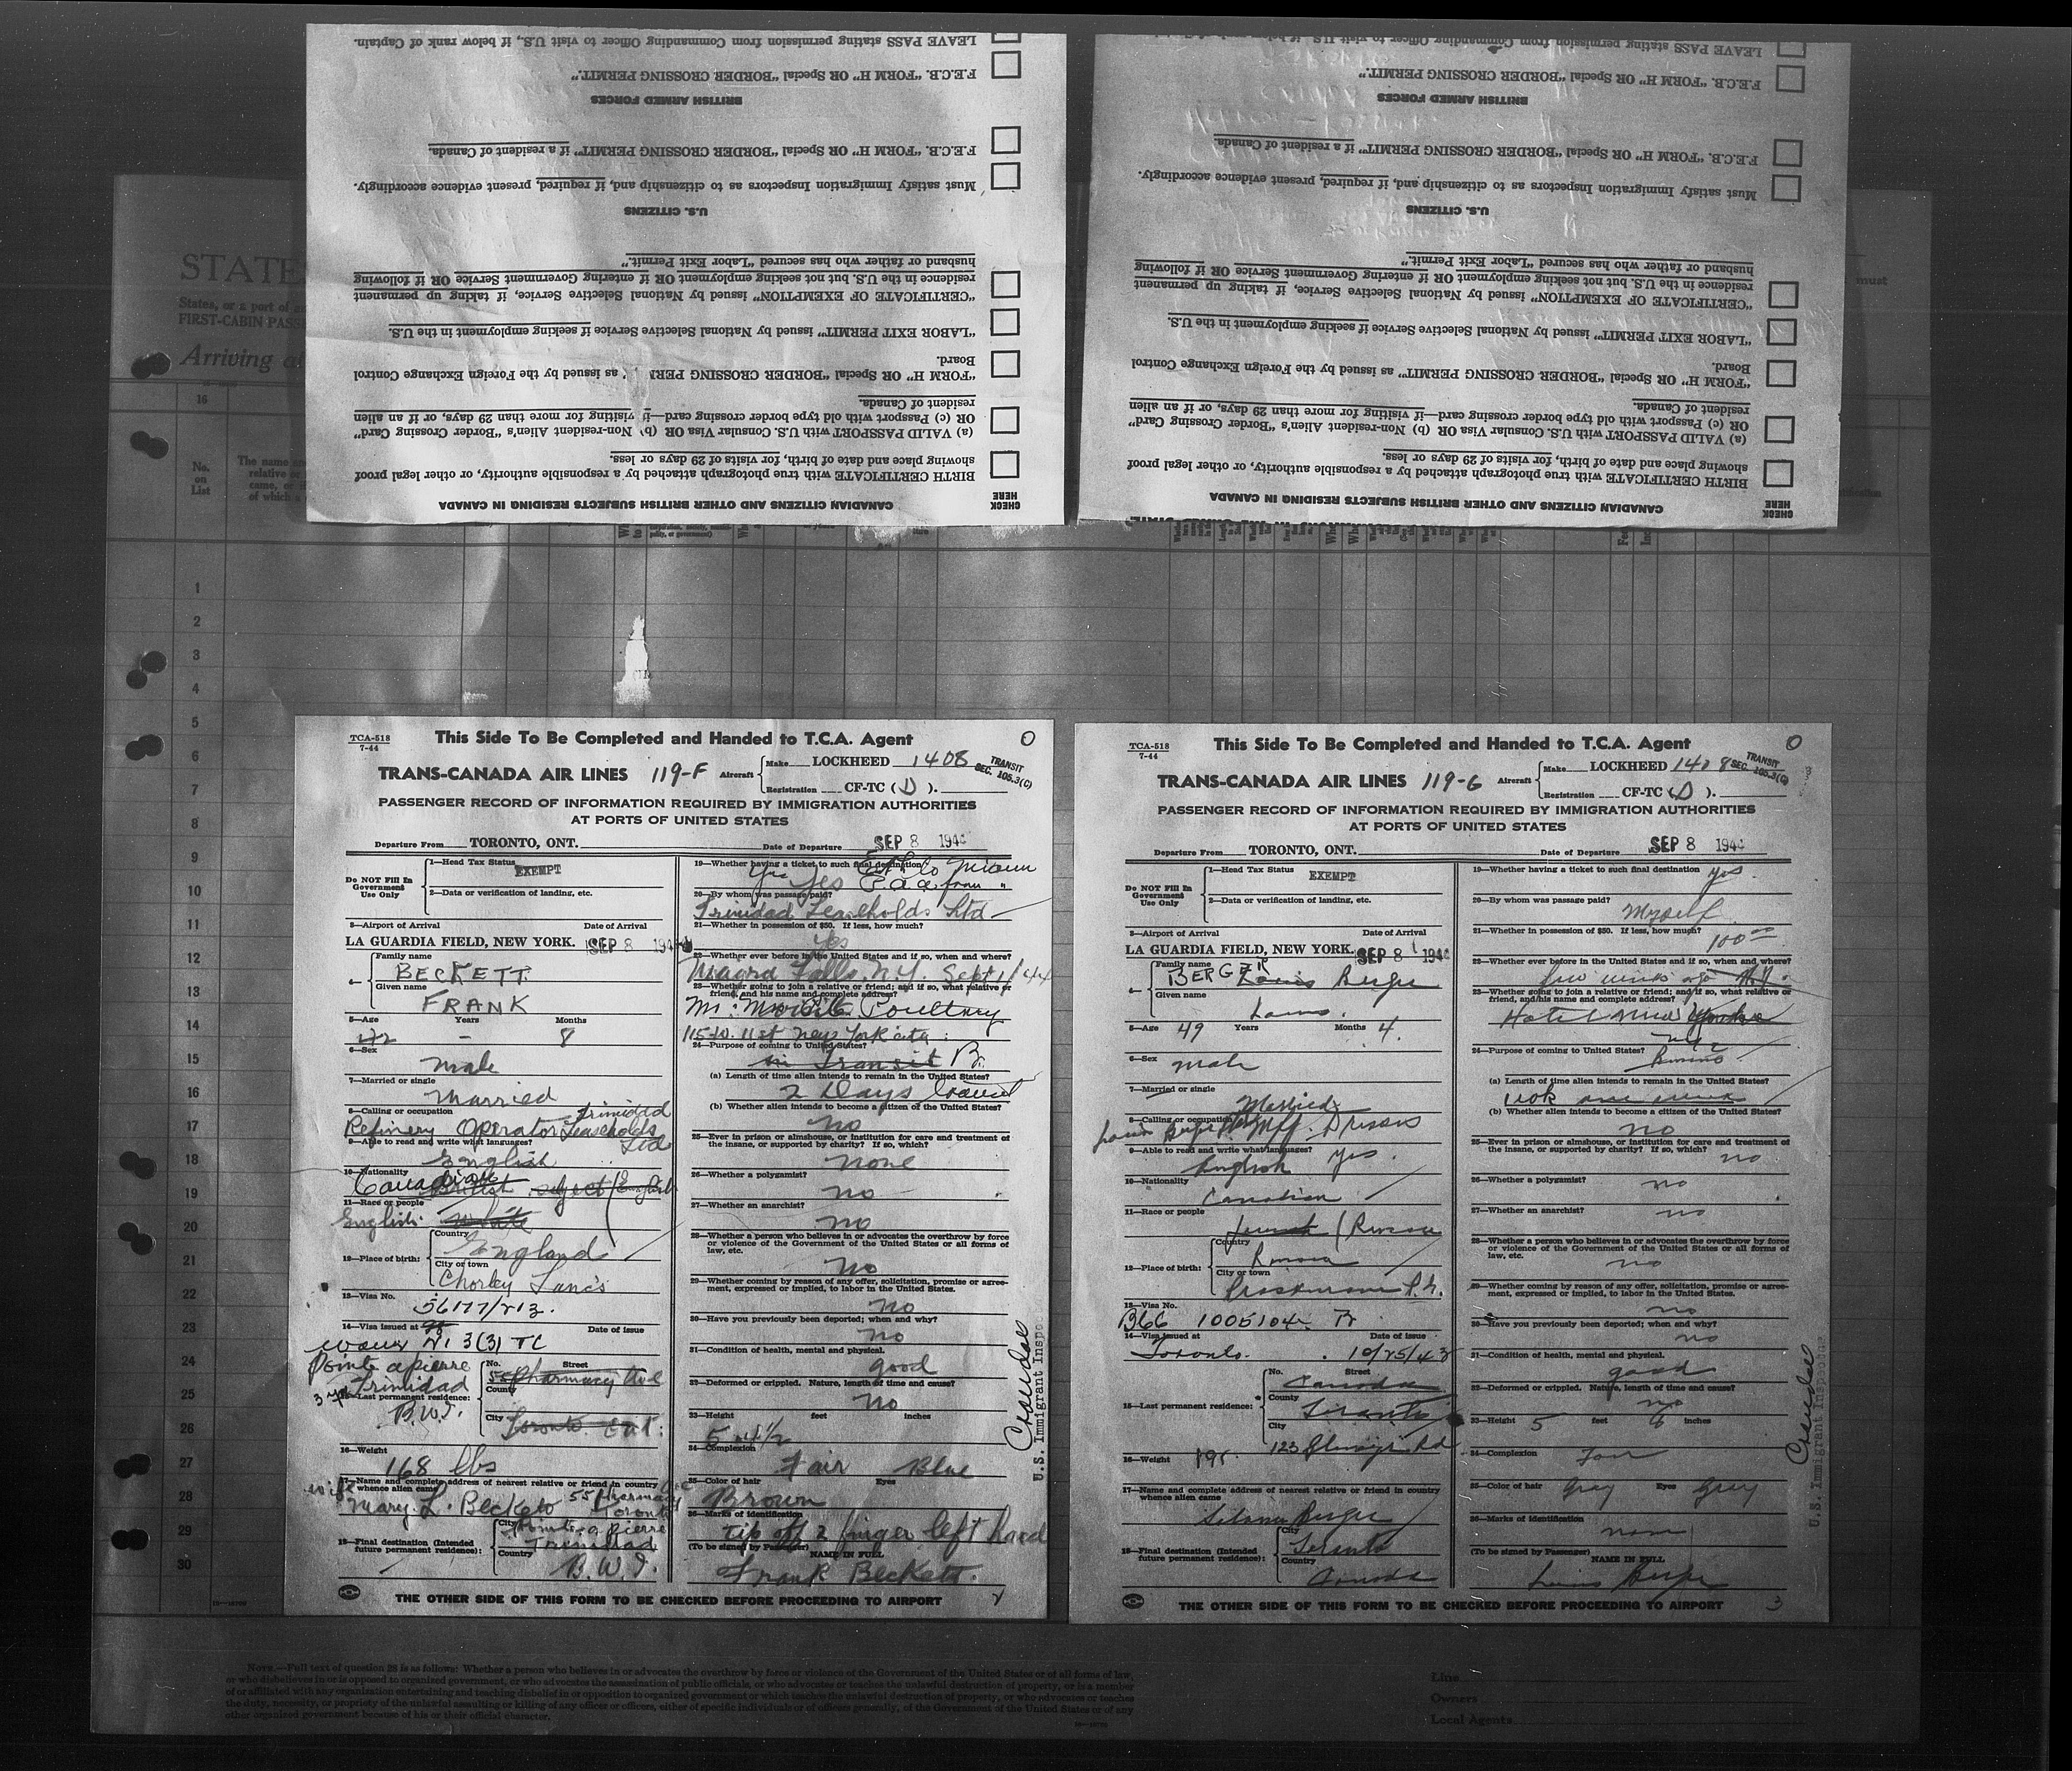 LEAVE PASS stating permission from Commanding Officer to visit U.S., if below rank of Captain.
F.E.C.B. "FORM H" OR Special "BORDER CROSSING PERMIT."
BRITISH ARMED FORCES
F.E.C.B. "FORM H" OR Special "BORDER CROSSING PERMIT" if a resident of Canada.
Must satisfy Immigration Inspectors as to citizenship and, if required, present evidence accordingly.
U.S. CITIZENS
husband or father who has secured "Labor Exit Permit."
residence in the U.S. but not seeking employment OR if entering Government Service OR if following
"CERTIFICATE OF EXEMPTION" issued by National Selective Service, if taking up permanent
"LABOR EXIT PERMIT" issued by National Selective Service if seeking employment in the U.S.
Board.
"FORM H" OR Special "BORDER CROSSING PER as issued by the Foreign Exchange Control
resident of Canada.
OR (c) Passport with old type border crossing card—if visiting for more than 29 days, or if an alien
(a) VALID PASSPORT with U.S. Consular Visa OR (b) Non-resident Alien's "Border Crossing Card"
showing place and date of birth, for visits of 29 days or less.
BIRTH CERTIFICATE with true photograph attached by a responsible authority, or other legal proof
CHECK HERE
CANADIAN CITIZENS AND OTHER BRITISH SUBJECTS RESIDING IN CANADA
LEAVE PASS stating permission from Commanding Officer to visit U.S., if below
F.E.C.B. "FORM H" OR Special "BORDER CROSSING PERMIT."
BRITISH ARMED FORCES
F.E.C.B. "FORM H" OR Special "BORDER CROSSING PERMIT" if a resident of Canada.
Must satisfy Immigration Inspectors as to citizenship and, if required, present evidence accordingly.
U.S. CITIZENS
husband or father who has secured "Labor Exit Permit."
residence in the U.S. but not seeking employment OR if entering Government Service OR if following
"CERTIFICATE OF EXEMPTION" issued by National Selective Service, if taking up permanent
"LABOR EXIT PERMIT" issued by National Selective Service if seeking employment in the U.S.
Board.
"FORM H" OR Special "BORDER CROSSING PERMIT" as issued by the Foreign Exchange Control
resident of Canada.
OR (c) Passport with old type border crossing card—if visiting for more than 29 days, or if an alien
(a) VALID PASSPORT with U.S. Consular Visa OR (b) Non-resident Alien's "Border Crossing Card"
showing place and date of birth, for visits of 29 days or less.
BIRTH CERTIFICATE with true photograph attached by a responsible authority, or other legal proof
CHECK HERE
CANADIAN CITIZENS AND OTHER BRITISH SUBJECTS RESIDING IN CANADA
STATE
States, or a port of
FIRST-CABIN PASS
Arriving a
must
16
No. on List
The name
relative or
came, or
of which a
1
2
3
4
5
6
7
8
9
10
11
12
13
14
15
16
17
18
19
20
21
22
23
24
25
26
27
28
29
30
TCA-518
7-44
This Side To Be Completed and Handed to T.C.A. Agent
O
TRANS-CANADA AIR LINES 119-F
Aircraft
Make LOCKHEED 1408
Registration CF-TC (D).
TRANSIT
SEC. 105.3(C)
PASSENGER RECORD OF INFORMATION REQUIRED BY IMMIGRATION AUTHORITIES
AT PORTS OF UNITED STATES
Departure From TORONTO, ONT.
Date of Departure SEP 8 1944
Do NOT Fill In
Government
Use Only
1—Head Tax Status EXEMPT
2—Data or verification of landing, etc.
3—Airport of Arrival Date of Arrival
LA GUARDIA FIELD, NEW YORK. SEP 8 194
4—
Family name
BECKETT
Given name
FRANK
5—Age Years Months
42 - 8
6—Sex
male
7—Married or single
Married
8—Calling or occupation
Refinery Operator Trinidad Leaseholds Ltd
9—Able to read and write what languages?
English
10—Nationality
Canadian British subject (English
11—Race or people
English White
12—Place of birth:
Country
England
City or town
Chorley Lancs
13—Visa No.
56177/213.
14—Visa issued at Date of issue
3(3) TC
Pointe a pierre
Trinidad
B.W.I.
15—Last permanent residence:
No. Street
55 Pharmacy Ave
County
City
Toronto Ont.
16—Weight
168 lbs
17—Name and complete address of nearest relative or friend in country
whence alien came
wife Mary L. Beckett 55 Pharmacy Ave Toronto
18—Final destination (Intended
future permanent residence):
City
Pointe-a-pierre
Trinidad
Country
B.W.I.
19—Whether having a ticket to such final destination
Yes
20—By whom was passage paid?
Trinidad Leaseholds Ltd
21—Whether in possession of $50. If less, how much?
Yes
22—Whether ever before in the United States and if so, when and where?
Niagara Falls, N.Y. Sept 1/44
23—Whether going to join a relative or friend; and if so, what relative or
friend, and his name and complete address?
Poultney
115 W. 11 st New York city
24—Purpose of coming to United States?
in Transit
(a) Length of time alien intends to remain in the United States?
2 Days
(b) Whether alien intends to become a citizen of the United States?
no
25—Ever in prison or almshouse, or institution for care and treatment of
the insane, or supported by charity? If so, which?
none
26—Whether a polygamist?
no
27—Whether an anarchist?
no
28—Whether a person who believes in or advocates the overthrow by force
or violence of the Government of the United States or all forms of
law, etc.
no
29—Whether coming by reason of any offer, solicitation, promise or agree-
ment, expressed or implied, to labor in the United States.
no
30—Have you previously been deported; when and why?
no
31—Condition of health, mental and physical.
good
32—Deformed or crippled. Nature, length of time and cause?
no
33—Height feet inches
34—Complexion
Fair Blue
35—Color of hair Eyes
Brown
36—Marks of identification
tip off 2 finger left hand
(To be signed by Passenger) NAME IN FULL
Frank Beckett.
THE OTHER SIDE OF THIS FORM TO BE CHECKED BEFORE PROCEEDING TO AIRPORT
2
U.S. Immigrant Inspec
TCA-518
7-44
This Side To Be Completed and Handed to T.C.A. Agent
O
TRANS-CANADA AIR LINES 119-G
Aircraft
Make LOCKHEED 1408
Registration CF-TC (D).
TRANSIT
SEC. 105.3(C)
PASSENGER RECORD OF INFORMATION REQUIRED BY IMMIGRATION AUTHORITIES
AT PORTS OF UNITED STATES
Departure From TORONTO, ONT.
Date of Departure SEP 8 1944
Do NOT Fill In
Government
Use Only
1—Head Tax Status EXEMPT
2—Data or verification of landing, etc.
3—Airport of Arrival Date of Arrival
LA GUARDIA FIELD, NEW YORK. SEP 8 1944
4—
Family name
BERGER Louis Berger
Given name
Louis.
5—Age 49 Years Months 4.
6—Sex
male
7—Married or single
Married
8—Calling or occupation
Mfg. Dresses
9—Able to read and write what languages?
English yes.
10—Nationality
Canadian
11—Race or people
Jewish (Russia
12—Place of birth:
Country
Russia
City or town
13—Visa No.
B66 1005104
14—Visa issued at Date of issue
Toronto. 10/25/43
15—Last permanent residence:
No. Street
Canada
County
Toronto
City
123 Rd
16—Weight 195.
17—Name and complete address of nearest relative or friend in country
whence alien came
Berger
18—Final destination (Intended
future permanent residence):
City
Toronto
Country
Canada
19—Whether having a ticket to such final destination yes.
20—By whom was passage paid?
Myself
21—Whether in possession of $50. If less, how much?
100.00
22—Whether ever before in the United States and if so, when and where?
few weeks ago N.Y.
23—Whether going to join a relative or friend; and if so, what relative or
friend, and his name and complete address?
Hotel New Yorker
24—Purpose of coming to United States?
(a) Length of time alien intends to remain in the United States?
one week
(b) Whether alien intends to become a citizen of the United States?
no
25—Ever in prison or almshouse, or institution for care and treatment of
the insane, or supported by charity? If so, which? no
26—Whether a polygamist?
no
27—Whether an anarchist?
no
28—Whether a person who believes in or advocates the overthrow by force
or violence of the Government of the United States or all forms of
law, etc.
no
29—Whether coming by reason of any offer, solicitation, promise or agree-
ment, expressed or implied, to labor in the United States.
no
30—Have you previously been deported; when and why?
no
31—Condition of health, mental and physical.
good
32—Deformed or crippled. Nature, length of time and cause?
no
33—Height 5 feet 6 inches
34—Complexion Fair
35—Color of hair Gray Eyes Grey
36—Marks of identification
none
(To be signed by Passenger) NAME IN FULL
Louis Berger
THE OTHER SIDE OF THIS FORM TO BE CHECKED BEFORE PROCEEDING TO AIRPORT
3
U.S. Immigrant Inspector
NOTE.—Full text of question 28 is as follows: Whether a person who believes in or advocates the overthrow by force or violence of the Government of the United States or of all forms of law,
or who disbelieves in or is opposed to organized government, or who advocates the assassination of public officials, or who advocates or teaches the unlawful destruction of property, or is a member
of or affiliated with any organization entertaining and teaching disbelief in or opposition to organized government or which teaches the unlawful destruction of property, or who advocates or teaches
the duty, necessity, or propriety of the unlawful assaulting or killing of any officer or officers, either of specific individuals or of officers generally, of the Government of the United States or of any
other organized government because of his or their official character.
Line
Owners
Local Agents